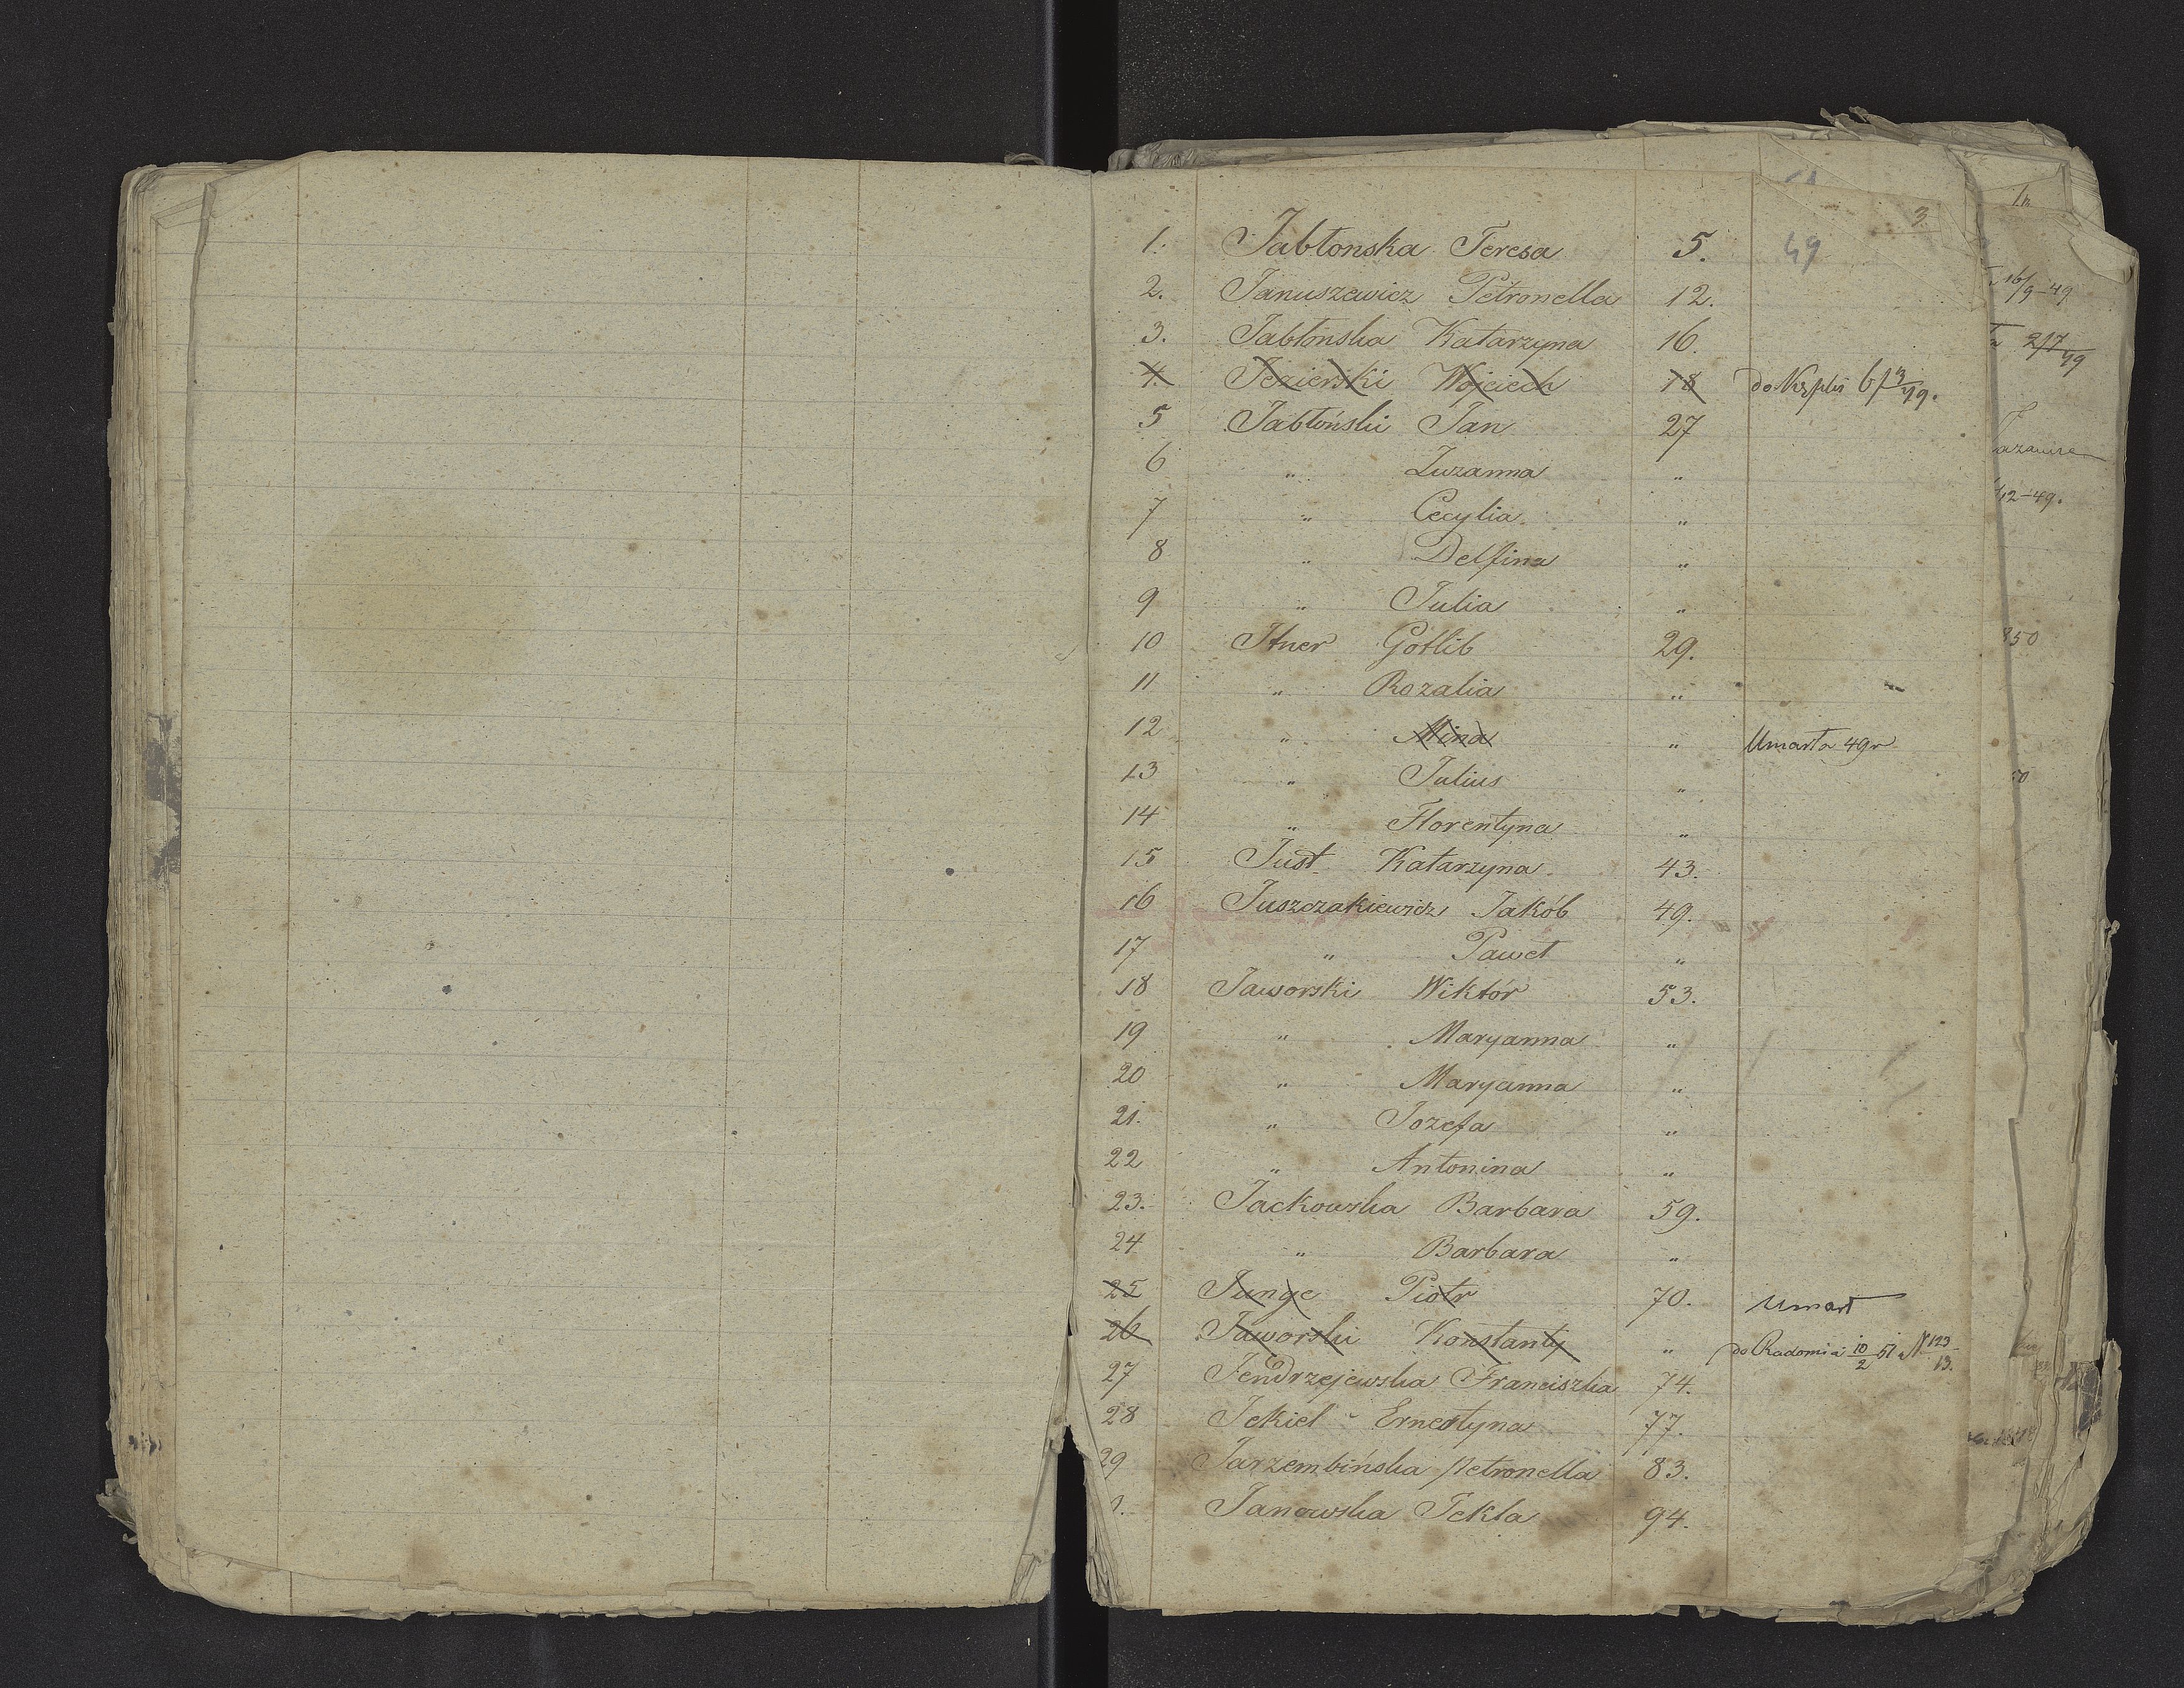 3.
1. Jabłonska Teresa 5. 49
2. Januszewicz Petronella 12.
3. Jabłońska Katarzyna 16.
4. Jezierski Wojciech 18
5 Jabłoński Jan 27
6 " Zuzanna "
7 " Cecylia "
8 " Delfina "
9 " Julia "
10 Itner Gotlib 29.
11 " Rozalia "
12 " Mina " Umarła 49 r
13 " Julius "
14 " Florentyna "
15 Just Katarzyna 43.
16 Juszczakiewicz Jakób 49.
17 " Paweł "
18 Jaworski Wiktór 53.
19 " Maryanna "
20 " Maryanna "
21. " Jozefa "
22 " Antonina "
23. Jackowska Barbara 59.
24 " Barbara "
25 Junge Piotr 70. Umarł
26 Jaworski Konstanty " do Radomia 10/2 51 N 123 13.
27 Jendrzejewska Franciszka 74.
28 Jekiel Ernestyna 77.
29 Jarzembińska Petronella 83.
Janowska Tekla 94.
16/9-49
2/7 49
12-49.
850
50